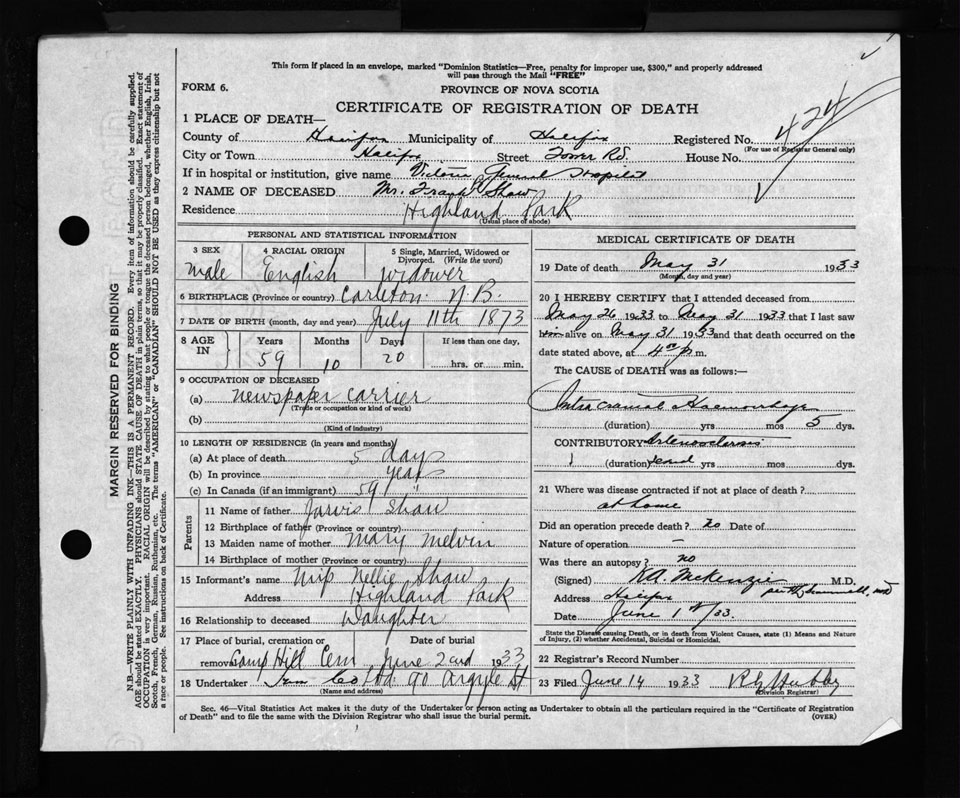 This form if placed in an envelope, marked "Dominion Statistics—Free, penalty for improper use, $300," and properly addressed
will pass through the Mail "FREE"
FORM 6.
PROVINCE OF NOVA SCOTIA
CERTIFICATE OF REGISTRATION OF DEATH
424
1 PLACE OF DEATH—
County of Halifax Municipality of Halifax Registered No.
(For use of Registrar General only)
City or Town Halifax Street Tower Rd. House No.
If in hospital or institution, give name Victoria General Hospital
2 NAME OF DECEASED Mr. Frank Shaw
Residence Highland Park
(Usual place of abode)
PERSONAL AND STATISTICAL INFORMATION
3 SEX 4 RACIAL ORIGIN 5 Single, Married, Widowed or
Divorced. (Write the word)
Male English Widower
6 BIRTHPLACE (Province or country) Carleton N.B.
7 DATE OF BIRTH (month, day and year) July 11th 1873
8 AGE IN Years Months Days If less than one day,
59 10 20 hrs. or min.
9 OCCUPATION OF DECEASED
(a) newspaper carrier
(Trade or occupation or kind of work)
(b)
(Kind of industry)
10 LENGTH OF RESIDENCE (in years and months)
(a) At place of death 5 days
(b) In province years
(c) In Canada (if an immigrant) 59
Parents
11 Name of father Jarvis Shaw
12 Birthplace of father (Province or country)
13 Maiden name of mother Mary Melvin
14 Birthplace of mother (Province or country)
15 Informant's name Miss Nellie Shaw
Address Highland Park
16 Relationship to deceased Daughter
17 Place of burial, cremation or Date of burial
removal Camp Hill Cem June 2nd 1933
18 Undertaker Co Ltd. 90 Argyle St
(Name and address)
MEDICAL CERTIFICATE OF DEATH
19 Date of death May 31 1933
(Month, day and year)
20 I HEREBY CERTIFY that I attended deceased from
May 26 1933 to May 31 1933 that I last saw
him alive on May 31 1933 and that death occurred on the
date stated above, at 4 p m.
The CAUSE of DEATH was as follows:—
Intracranial Haemorrhage
(duration) yrs mos 5 dys.
CONTRIBUTORY Arteriosclerosis
(duration) yrs mos dys.
21 Where was disease contracted if not at place of death?
at home
Did an operation precede death? No Date of
Nature of operation —
Was there an autopsy? no
(Signed) McKenzie M.D.
Address Halifax
Date June 1st/33
State the Disease causing Death, or in death from Violent Causes, state (1) Means and Nature
of Injury, (2) whether Accidental, Suicidal or Homicidal.
22 Registrar's Record Number
23 Filed June 14 1933
(Division Registrar)
Sec. 46—Vital Statistics Act makes it the duty of the Undertaker or person acting as Undertaker to obtain all the particulars required in the "Certificate of Registration
of Death" and to file the same with the Division Registrar who shall issue the burial permit. (OVER)
MARGIN RESERVED FOR BINDING
N.B.—WRITE PLAINLY WITH UNFADING INK—THIS IS A PERMANENT RECORD. Every item of information should be carefully supplied.
AGE should be stated EXACTLY. PHYSICIANS should STATE CAUSE OF DEATH in plain terms, so that it may be properly classified. Exact statement of
OCCUPATION is very important. RACIAL ORIGIN will be described by stating to what people or tongue the deceased person belonged, whether English, Irish,
Scotch, French, German, Russian, Ruthenian, etc. The terms "AMERICAN" or "CANADIAN" SHOULD NOT BE USED as they express citizenship but not
a race or people. See instructions on back of Certificate.